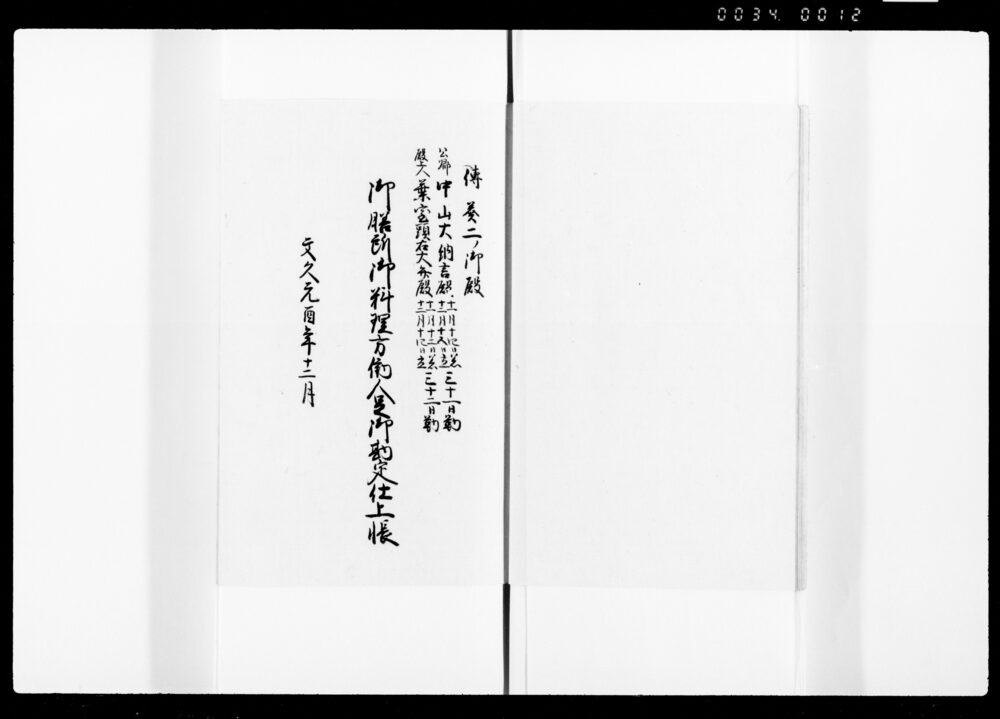 0034.0012
傳 葵二ノ御殿
公卿 中山大納言殿 十一月十四日着 十二月十五日立 三十一日勤
殿上人 葉室頭右大弁殿 十一月十三日着 十二月十四日立 三十二日勤
御膳所御料理方働人足御勘定仕上帳
文久元酉年十二月